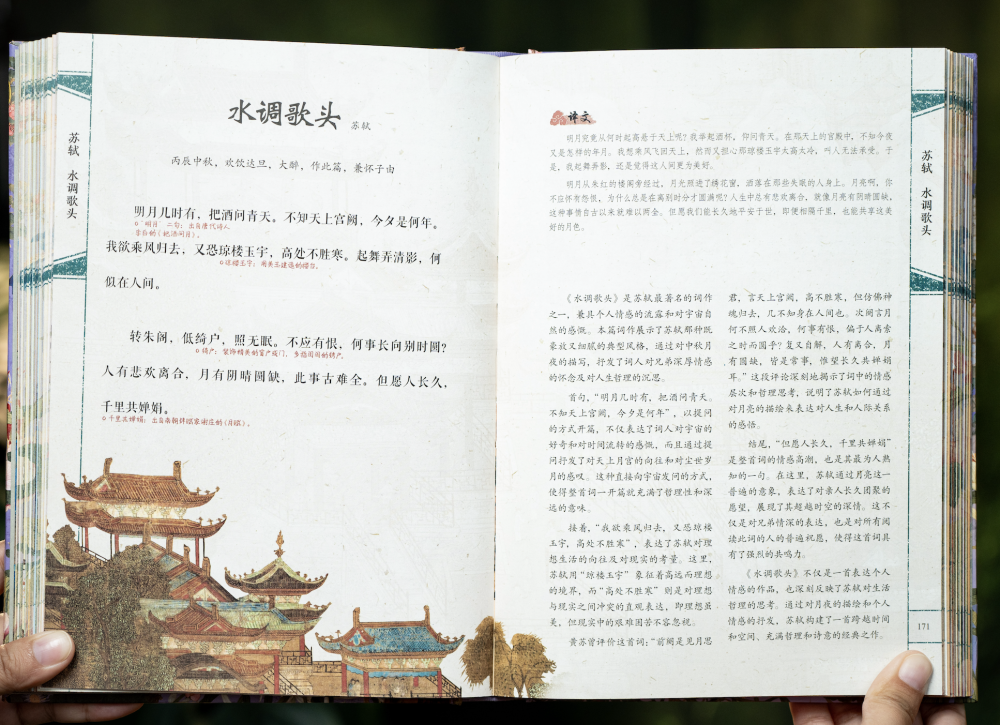 苏轼 水调歌头
水调歌头 苏轼
丙辰中秋，欢饮达旦，大醉，作此篇，兼怀子由
明月几时有，把酒问青天。不知天上宫阙，今夕是何年。
明月 二句：出自唐代诗人
李白的《把酒问月》。
我欲乘风归去，又恐琼楼玉宇，高处不胜寒。起舞弄清影，何
琼楼玉宇：用美玉建造的楼台。
似在人间。
转朱阁，低绮户，照无眠。不应有恨，何事长向别时圆？
绮户：装饰精美的窗户或门，多指闺阁的绣户。
人有悲欢离合，月有阴晴圆缺，此事古难全。但愿人长久，
千里共婵娟。
千里共婵娟：出自南朝辞赋家谢庄的《月赋》。
译文
明月究竟从何时起高悬于天上呢？我举起酒杯，仰问青天。在那天上的宫殿中，不知今夜
又是怎样的年月。我想乘风飞回天上，然而又担心那琼楼玉宇太高太冷，叫人无法承受。于
是，我起舞弄影，还是觉得这人间更为美好。
明月从朱红的楼阁旁经过，月光照进了绣花窗，洒落在那些失眠的人身上。月亮啊，你
不应怀有怨恨，为什么总是在离别时分才圆满呢？人生中总有悲欢离合，就像月亮有阴晴圆缺，
这种事情自古以来就难以两全。但愿我们能长久地平安于世，即便相隔千里，也能共享这美
好的月色。
《水调歌头》是苏轼最著名的词作
之一，兼具个人情感的流露和对宇宙自
然的感慨。本篇词作展示了苏轼那种既
豪放又细腻的典型风格，通过对中秋月
夜的描写，抒发了词人对兄弟深厚情感
的怀念及对人生哲理的沉思。
首句，“明月几时有，把酒问青天。
不知天上宫阙，今夕是何年”，以提问
的方式开篇，不仅表达了词人对宇宙的
好奇和对时间流转的感慨，而且通过提
问抒发了对天上月宫的向往和对尘世岁
月的感叹。这种直接向宇宙发问的方式，
使得整首词一开篇就充满了哲理性和深
远的意味。
接着，“我欲乘风归去，又恐琼楼
玉宇，高处不胜寒”，表达了苏轼对理
想生活的向往及对现实的考量。这里，
苏轼用“琼楼玉宇”象征着高远而理想
的境界，而“高处不胜寒”则是对理想
与现实之间冲突的直观表达，即理想虽
美，但现实中的艰难困苦不容忽视。
黄苏曾评价这首词：“前阕是见月思
君，言天上宫阙，高不胜寒，但仿佛神
魂归去，几不知身在人间也。次阕言月
何不照人欢洽，何事有恨，偏于人离索
之时而圆乎？复又自解，人有离合，月
有圆缺，皆是常事，惟望长久共婵娟
耳。”这段评论深刻地揭示了词中的情感
层次和哲理思考，说明了苏轼如何通过
对月亮的描绘来表达对人生和人际关系
的感悟。
结尾，“但愿人长久，千里共婵娟”
是整首词的情感高潮，也是其最为人熟
知的一句。在这里，苏轼通过月亮这一
普遍的意象，表达了对亲人长久团聚的
愿望，展现了其超越时空的深情。这不
仅是对兄弟情深的表达，也是对所有阅
读此词的人的普遍祝愿，使得这首词具
有了强烈的共鸣力。
《水调歌头》不仅是一首表达个人
情感的作品，也深刻反映了苏轼对生活
哲理的思考。通过对月夜的描绘和个人
情感的抒发，苏轼构建了一首跨越时间
和空间、充满哲理和诗意的经典之作。
苏轼 水调歌头
171